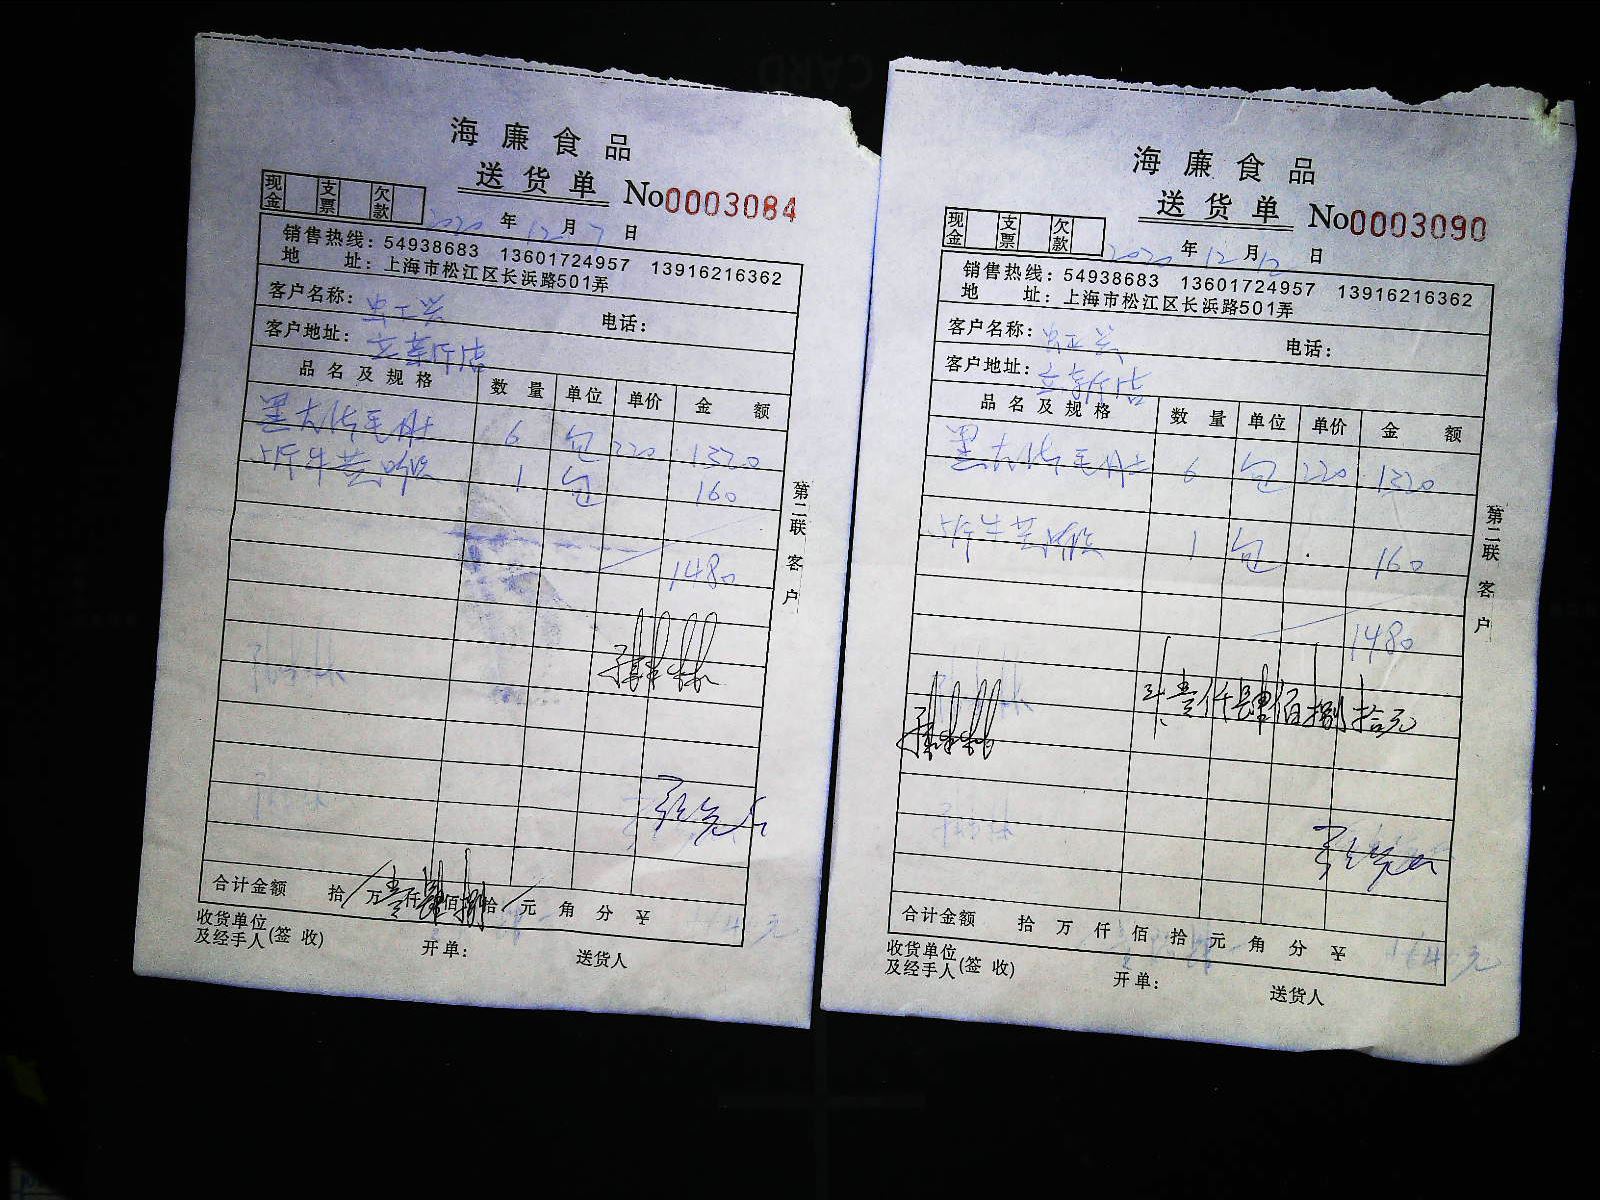 海廉食品
送货单 No0003084
现金 支票 欠款
2020年12月7日
销售热线：54938683 13601724957 13916216362
地 址：上海市松江区长浜路501弄
客户名称：
电话：
客户地址：
品名及规格 数量 单位 单价 金额
黑大 毛肚 6 包 220 1320
5斤牛 1 包 160
1480
第二联 客户
合计金额 拾 万壹仟肆佰捌拾 元 角 分 ¥
收货单位及经手人(签收) 开单： 送货人
海廉食品
送货单 No0003090
现金 支票 欠款
2020年12月12日
销售热线：54938683 13601724957 13916216362
地 址：上海市松江区长浜路501弄
客户名称：
电话：
客户地址：
品名及规格 数量 单位 单价 金额
黑大 毛肚 6 包 220 1320
5斤牛 1 包 160
1480
壹仟肆佰捌拾元
第二联 客户
合计金额 拾 万 仟 佰 拾 元 角 分 ¥
收货单位及经手人(签收) 开单： 送货人